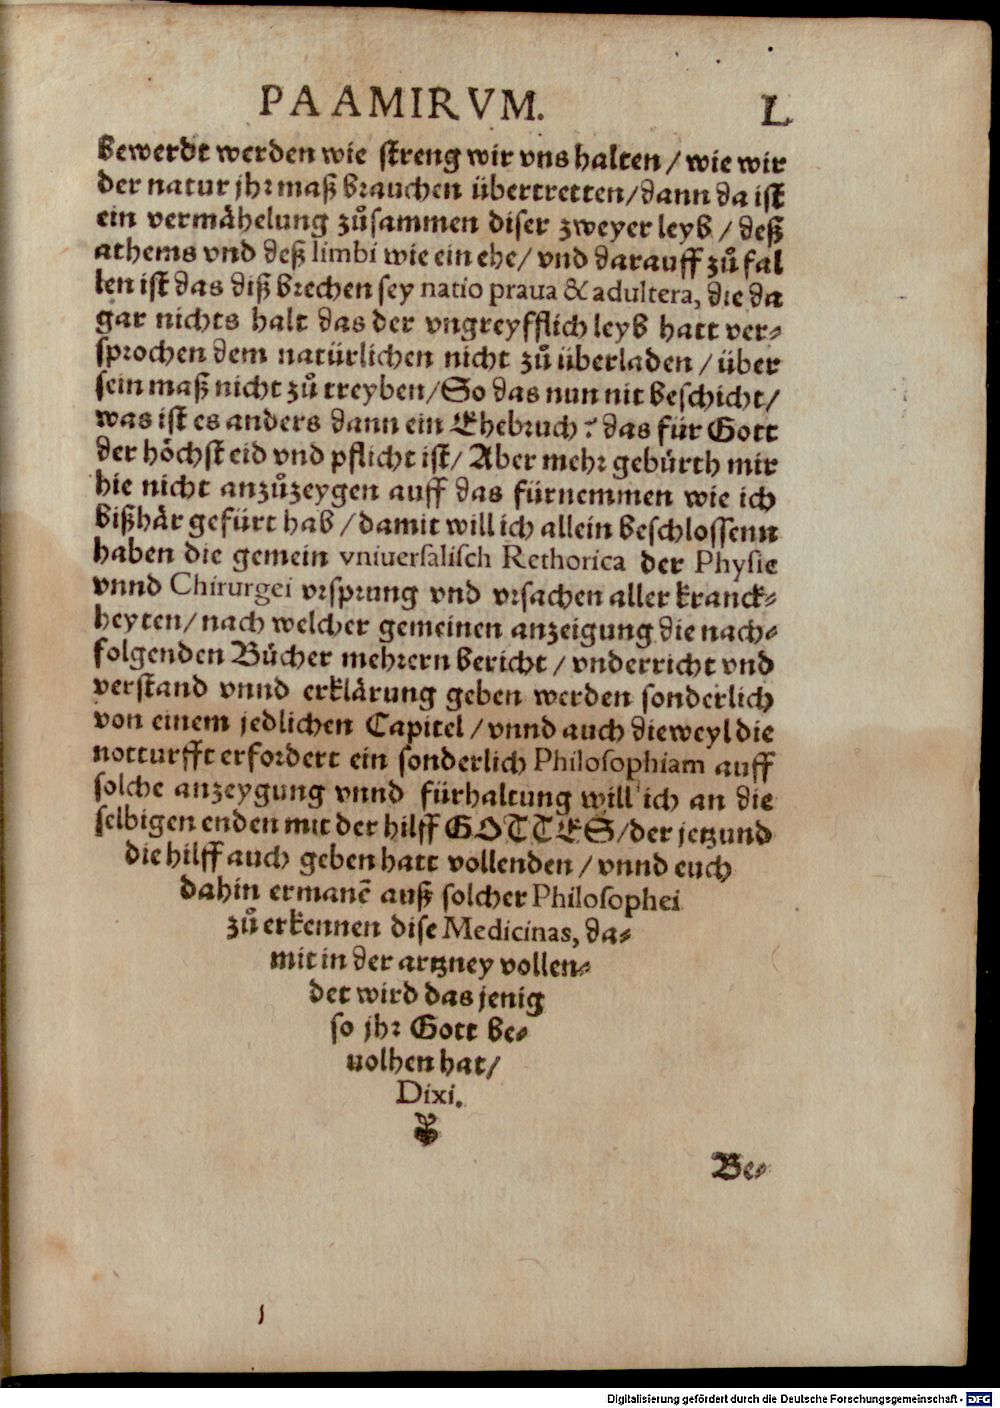 PAAMIRVM. L
bewerdt werden wie streng wir vns halten / wie wir
der natur jhr maß brauchen übertretten/dann da ist
ein vermähelung zůsammen diser zweyer leyb / deß
athems vnd deß limbi wie ein ehe/ vnd darauff zů fal
len ist das diß brechen sey natio praua & adultera, die da
gar nichts halt das der vngreyfflich leyb hatt ver-
sprochen dem natürlichen nicht zů überladen / über
sein maß nicht zů treyben/So das nun nit beschicht/
was ist es anders dann ein Ehebruch? das für Gott
der höchst eid vnd pflicht ist/ Aber mehr gebürth mir
hie nicht anzůzeygen auff das fürnemmen wie ich
bißhär gefürt hab / damit will ich allein beschlossenn
haben die gemein vniuersalisch Rethorica der Physie
vnnd Chirurgei vrsprung vnd vrsachen aller kranck-
heyten/ nach welcher gemeinen anzeigung die nach-
folgenden Bücher mehrern bericht / vnderricht vnd
verstand vnnd erklärung geben werden sonderlich
von einem jedlichen Capitel / vnnd auch dieweyl die
notturfft erfordert ein sonderlich Philosophiam auff
solche anzeygung vnnd fürhaltung will ich an die
selbigen enden mit der hilff GOTTES/der jetzund
die hilff auch geben hatt vollenden / vnnd euch
dahin ermanē auß solcher Philosophei
zů erkennen dise Medicinas, da-
mit in der artzney vollen-
det wird das jenig
so jhr Gott be-
uolhen hat/
Dixi.
Be-
Digitalisierung gefördert durch die Deutsche Forschungsgemeinschaft - DFG